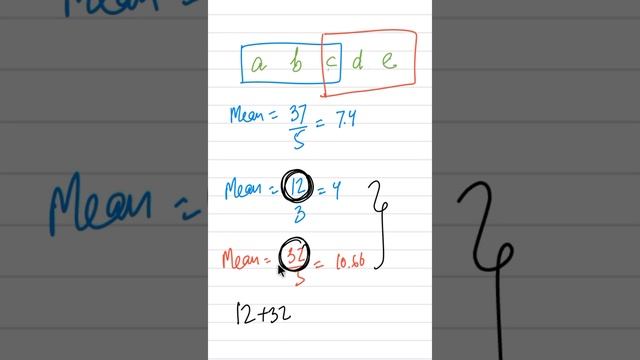 a b c d e
Mean = 37/5 = 7.4
Mean = 12/3 = 4
Mean = 32/3 = 10.66
12+32